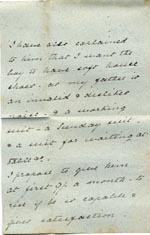 I have also explained
to him that I want the
boy to have soft house
shoes - as my father is
an invalid & dislikes
noise - & a working
suit - a Sunday suit -
& a suit for waiting at
table.
I propose to give him
at first £1 a month - to
rise if he is capable &
gives satisfaction